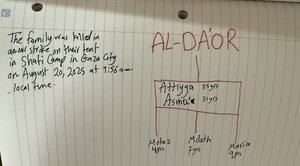 The family was killed in
an air strike on their tent
in Shati Camp in Gaza City
on August 20, 2025 at 1:56 a.m
local time.
AL-DA'OR
Attiyya 35 yrs
Asmaa 31 yrs
Motaz
4 yrs
7 yrs
Maria
9 yrs